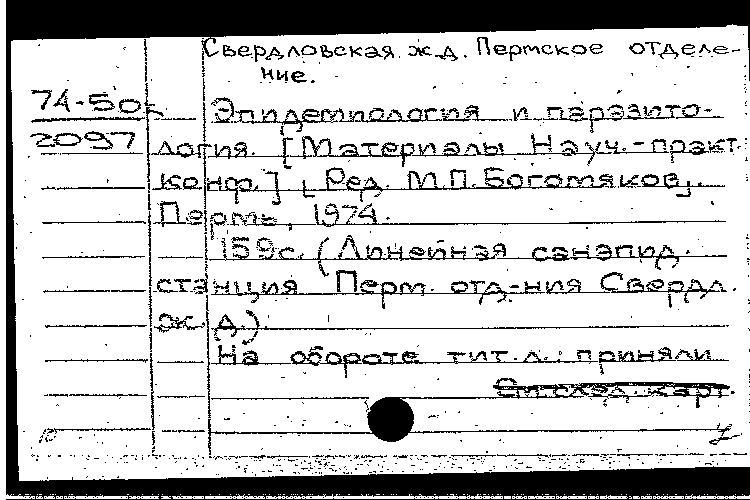 Свердловская ж.д. Пермское отделе-
ние.
74-50к
2097
Эпидемиология и паразито-
логия. [Материалы Науч.-практ.
конф.] [Ред. М.П. Богомяков].
Пермь, 1974.
159с. (Линейная санэпид.
станция Перм. отд-ния Свердл.
ж.д.).
На обороте тит.л.: приняли
См.след.карт.